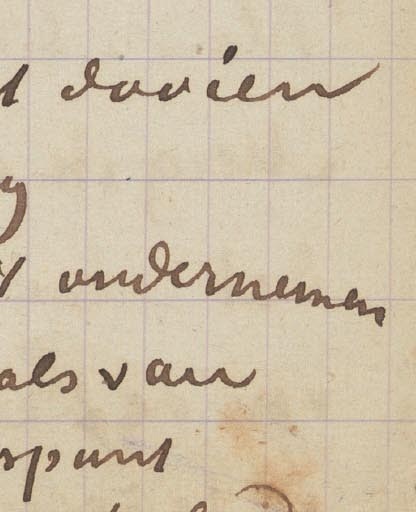 dooien
ondernemen
als van
spunt